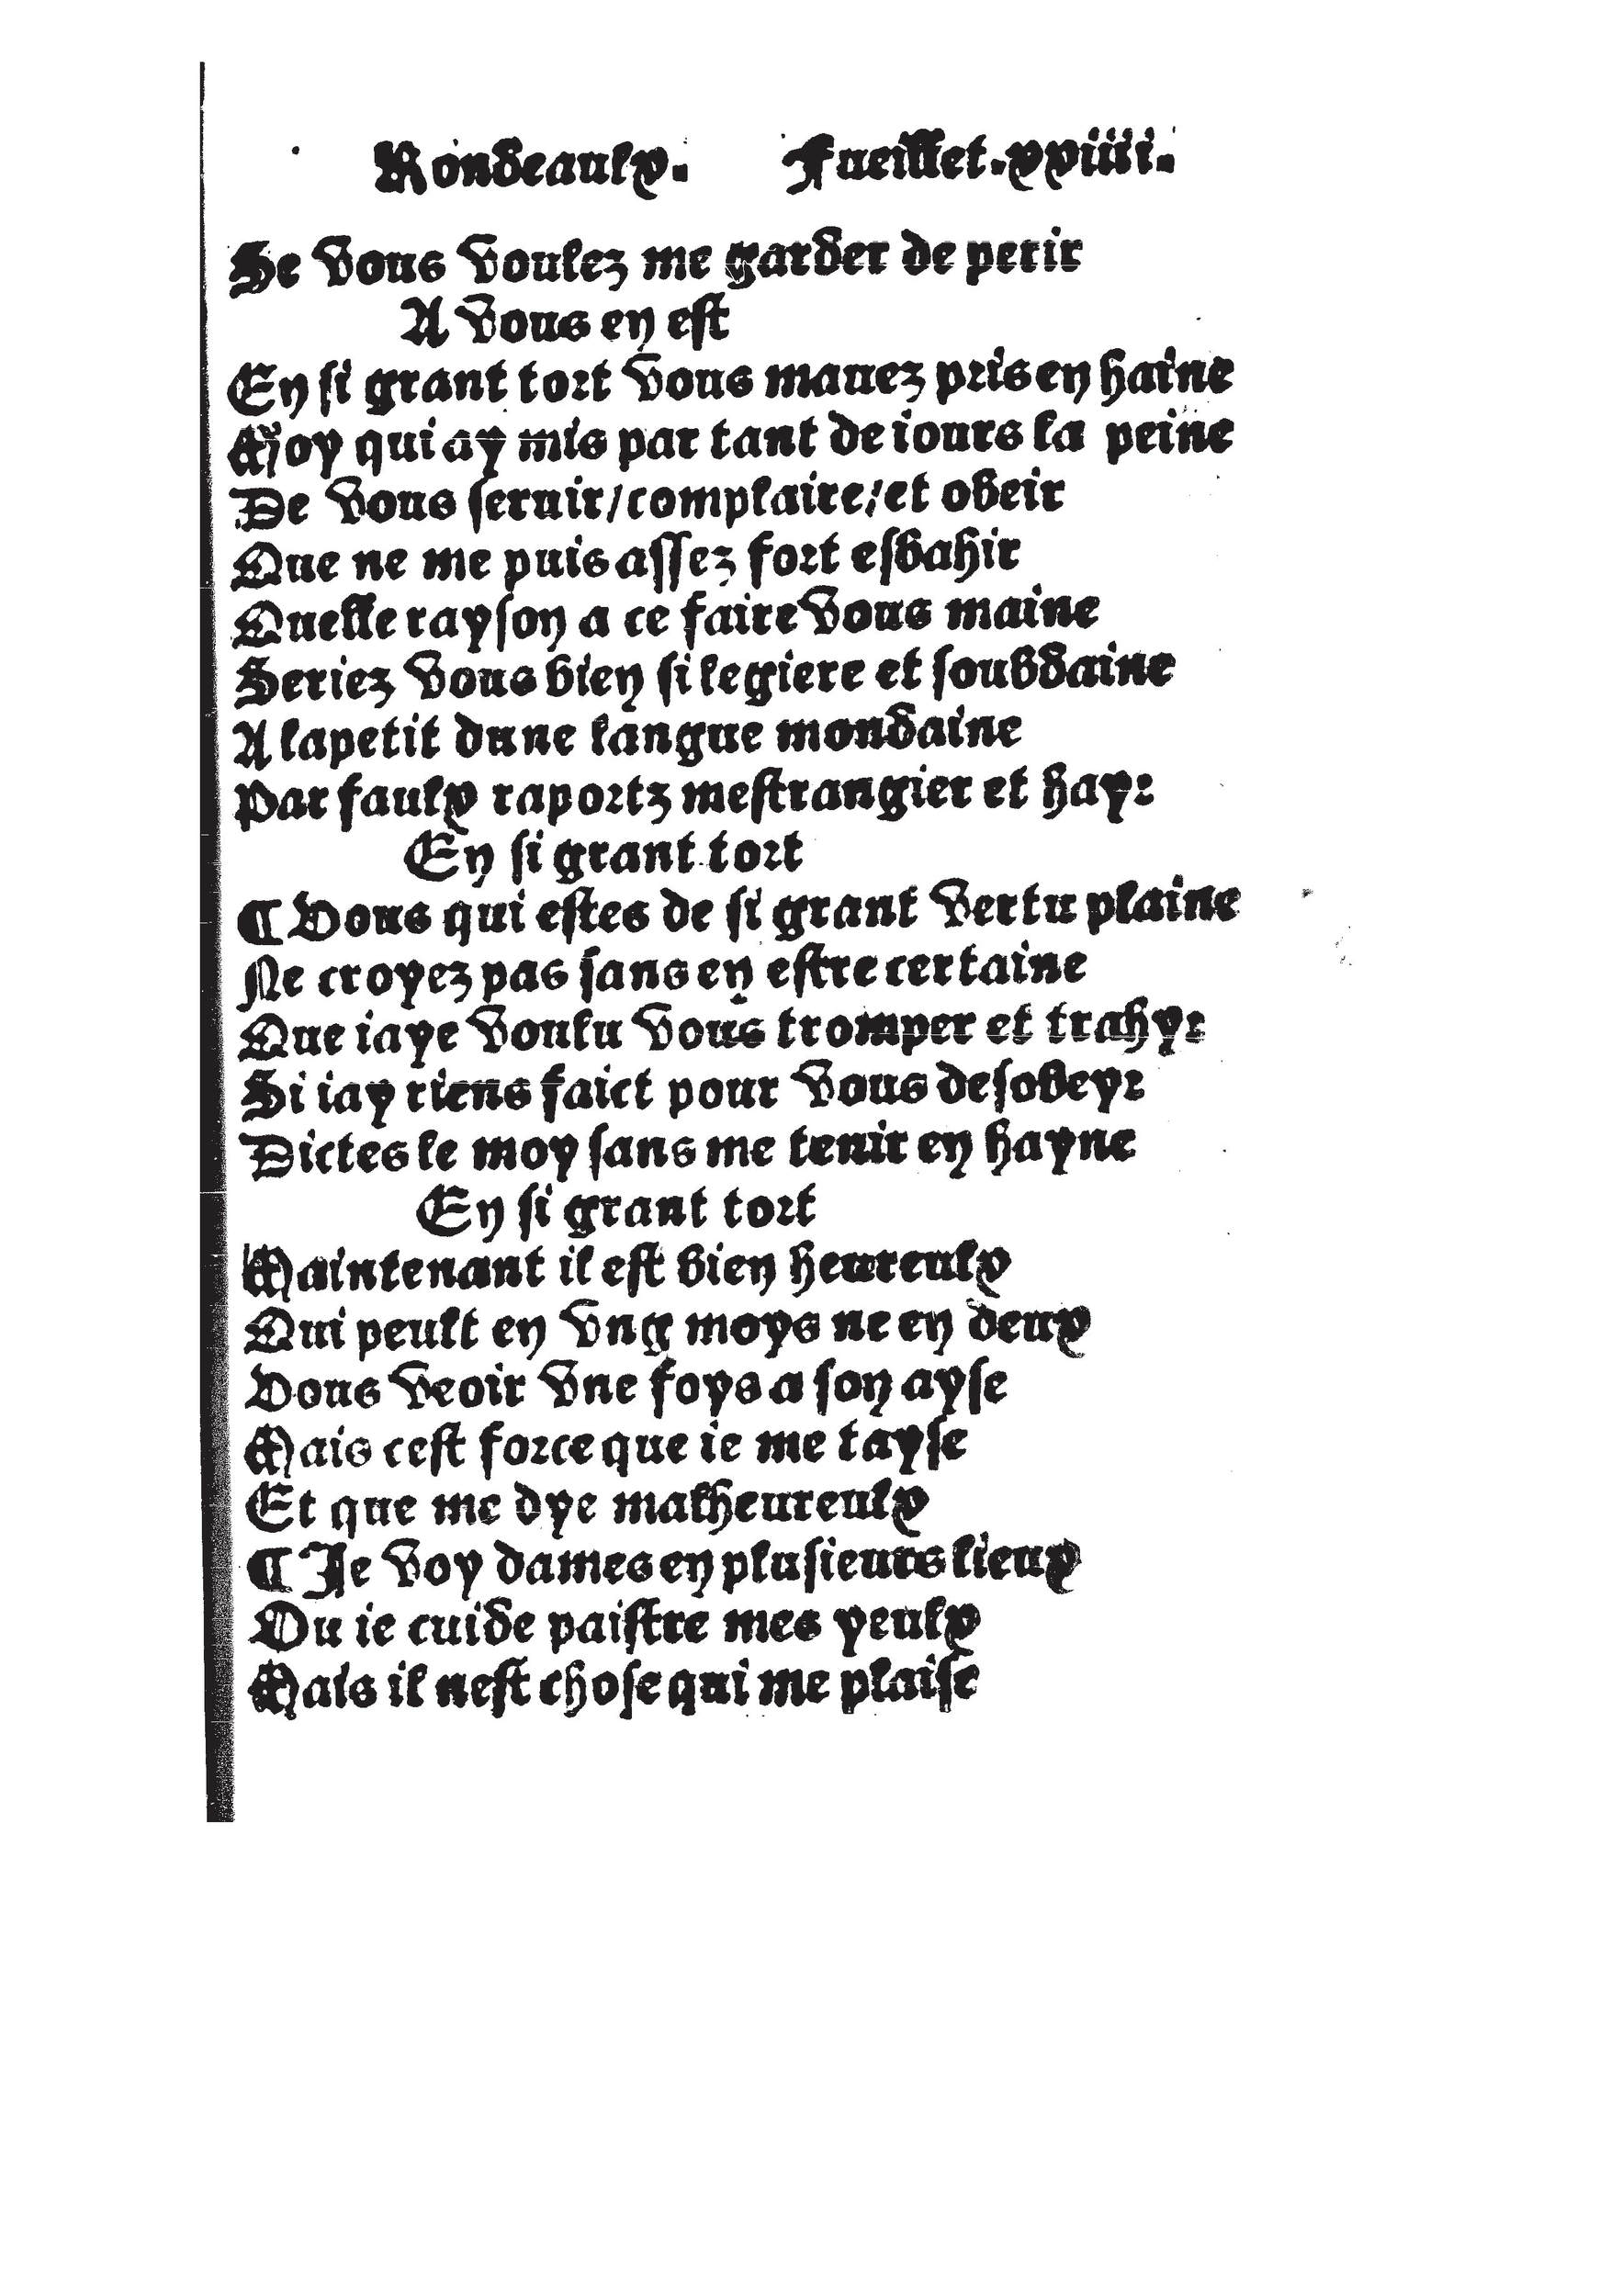 Rondeaulx. Fueillet.xxiiii.
Se vous voulez me garder de perir
A vous en est
En si grant tort vous mauez pris en haine
Moy qui ay mis par tant de iours la peine
De vous seruir/complaire/et obeir
Que ne me puis assez fort esbahir
Quelle rayson a ce faire vous maine
Seriez vous bien si legiere et soubdaine
A lapetit dune langue mondaine
Par faulx raportz mestrangier et hayr
En si grant tort
¶ Vous qui estes de si grant vertu plaine
Ne croyez pas sans en estre certaine
Que iaye voulu vous tromper et trahyr
Si iay riens faict pour vous desobeyr
Dictes le moy sans me tenir en hayne
En si grant tort
Maintenant il est bien heureulx
Qui peult en vng moys ne en deux
Vous veoir vne foys a son ayse
Mais cest force que ie me tayse
Et que me dye malheureulx
¶ Je voy dames en plusieurs lieux
Ou ie cuide paistre mes yeulx
Mais il nest chose qui me plaise